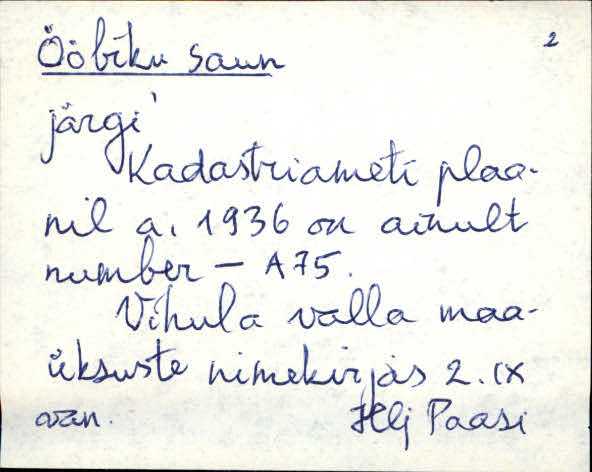 Ööbiku saun 2
järgi
Kadastriameti plaa-
nil a. 1936 on ainult
number - A75.
Vihula valla maa-
üksuste nimekirjas 2. IX
Paasi